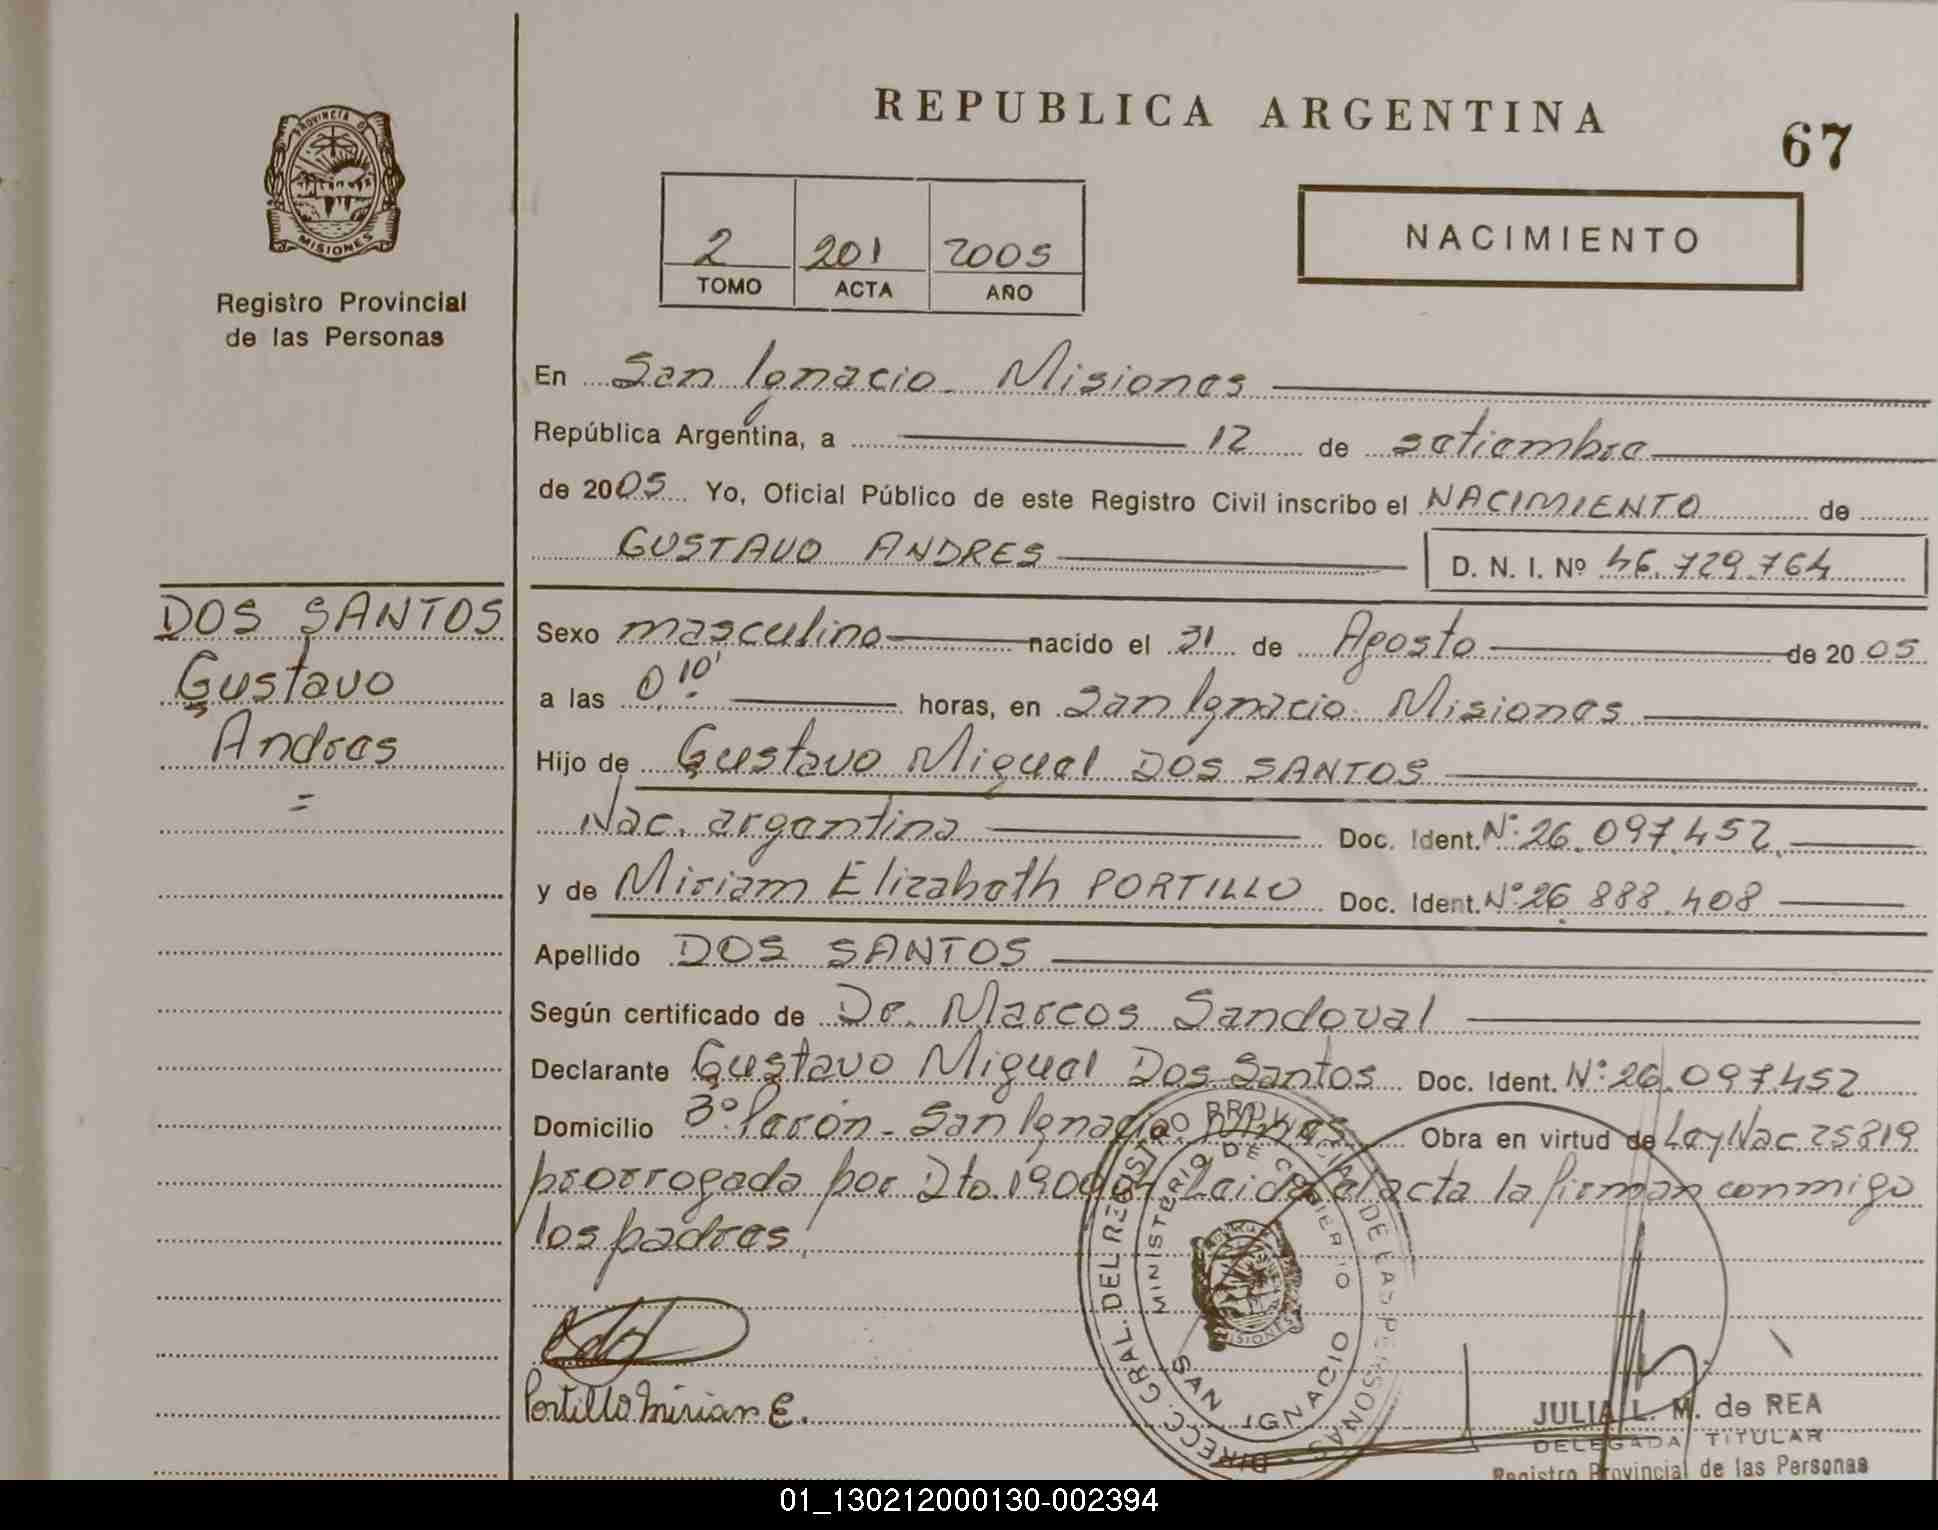 REPUBLICA ARGENTINA
67
PROVINCIA DE
MISIONES
Registro Provincial
de las Personas
2 201 2005
TOMO ACTA AÑO
NACIMIENTO
En San Ignacio - Misiones
República Argentina, a 12 de setiembre
de 2005 Yo, Oficial Público de este Registro Civil inscribo el NACIMIENTO de
GUSTAVO ANDRES D. N. I. Nº 46.729.764
DOS SANTOS
Gustavo
Andres
=
Sexo masculino nacido el 31 de Agosto de 2005
a las 0,10' horas, en San Ignacio Misiones
Hijo de Gustavo Miguel DOS SANTOS
Nac. argentina Doc. Ident. Nº 26.097.452
y de Miriam Elizabeth PORTILLO Doc. Ident. Nº 26.888.408
Apellido DOS SANTOS
Según certificado de Dr. Marcos Sandoval
Declarante Gustavo Miguel Dos Santos Doc. Ident. Nº 26.097.452
Domicilio 3º Perón - San Ignacio Obra en virtud de Ley Nac. 25819
prorrogada por Dto. Leida el acta la firman conmigo
los padres.
DIRECC. GRAL. DEL REGISTRO PROVINCIAL DE LAS PERSONAS
MINISTERIO DE GOBIERNO
MISIONES
SAN IGNACIO
Portillo Mirian E.
JULIA L. M. de REA
DELEGADA TITULAR
Registro Provincial de las Personas
01_130212000130-002394